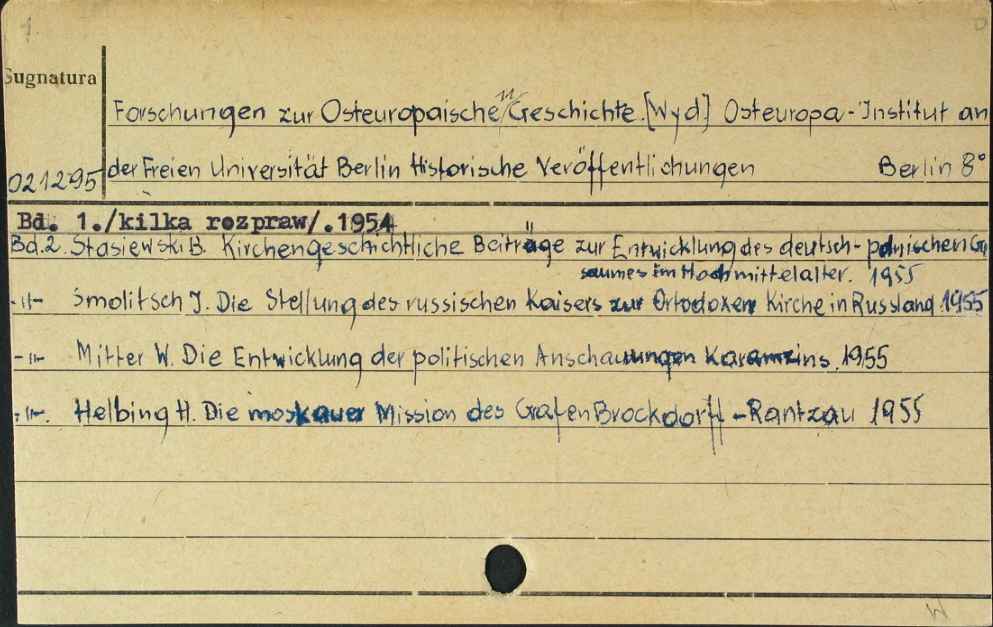 1.
Sugnatura
Forschungen zur Osteuropaische n Geschichte. [Wyd] Osteuropa-Institut an
der Freien Universität Berlin Historische Veröffentlichungen Berlin 8°
021295
Bd. 1./kilka rozpraw/.1954
Bd.2. Stasiewski B. Kirchengeschichtliche Beiträge zur Entwicklung des deutsch-polnischen Gren
saumes im Hochmittelalter. 1955
-"- Smolitsch J. Die Stellung des russischen Kaisers zur Ortodoxen Kirche in Russland 1955
-"- Mitter W. Die Entwicklung der politischen Anschauungen Karamzins. 1955
-"- Helbing H. Die moskauer Mission des Grafen Brockdorff-Rantzau 1955
W